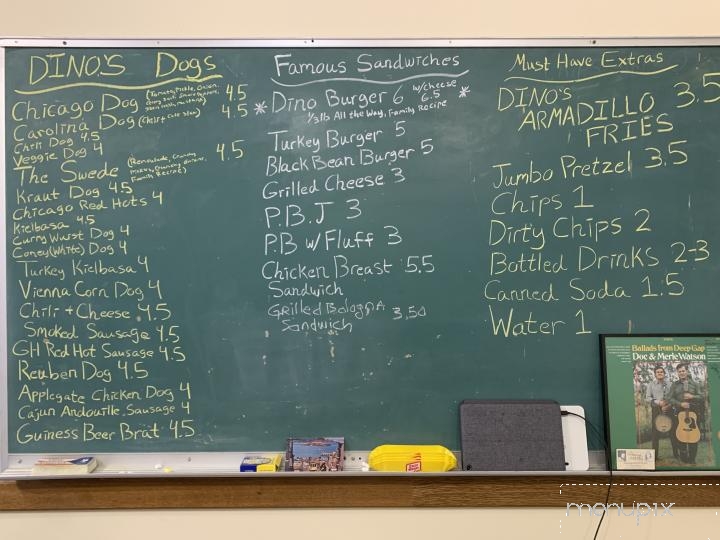 DINO'S Dogs
Chicago Dog (Tomato, Pickle, Onion, 4.5
Carolina Dog (Chili + Cole Slaw) 4.5
Chili Dog 4.5
Veggie Dog 4
The Swede (Remoulade, Crunchy 4.5
Family Recipe)
Kraut Dog 4.5
Chicago Red Hots 4
Kielbasa 4.5
Curry Wurst Dog 4
Coney (White) Dog 4
Turkey Kielbasa 4
Vienna Corn Dog 4
Chili + Cheese 4.5
Smoked Sausage 4.5
GH Red Hot Sausage 4.5
Reuben Dog 4.5
Applegate Chicken Dog 4
Cajun Andouille Sausage 4
Guiness Beer Brat 4.5
Famous Sandwiches
* Dino Burger 6 w/cheese 6.5 *
1/3 lb All the Way, Family Recipe
Turkey Burger 5
Black Bean Burger 5
Grilled Cheese 3
P.B.J 3
P.B w/ Fluff 3
Chicken Breast 5.5
Sandwich
Grilled Bologna 3.50
Sandwich
Must Have Extras
DINO'S
ARMADILLO 3.5
FRIES
Jumbo Pretzel 3.5
Chips 1
Dirty Chips 2
Bottled Drinks 2-3
Canned Soda 1.5
Water 1
Ballads from Deep Gap
Doc & Merle Watson
menupix